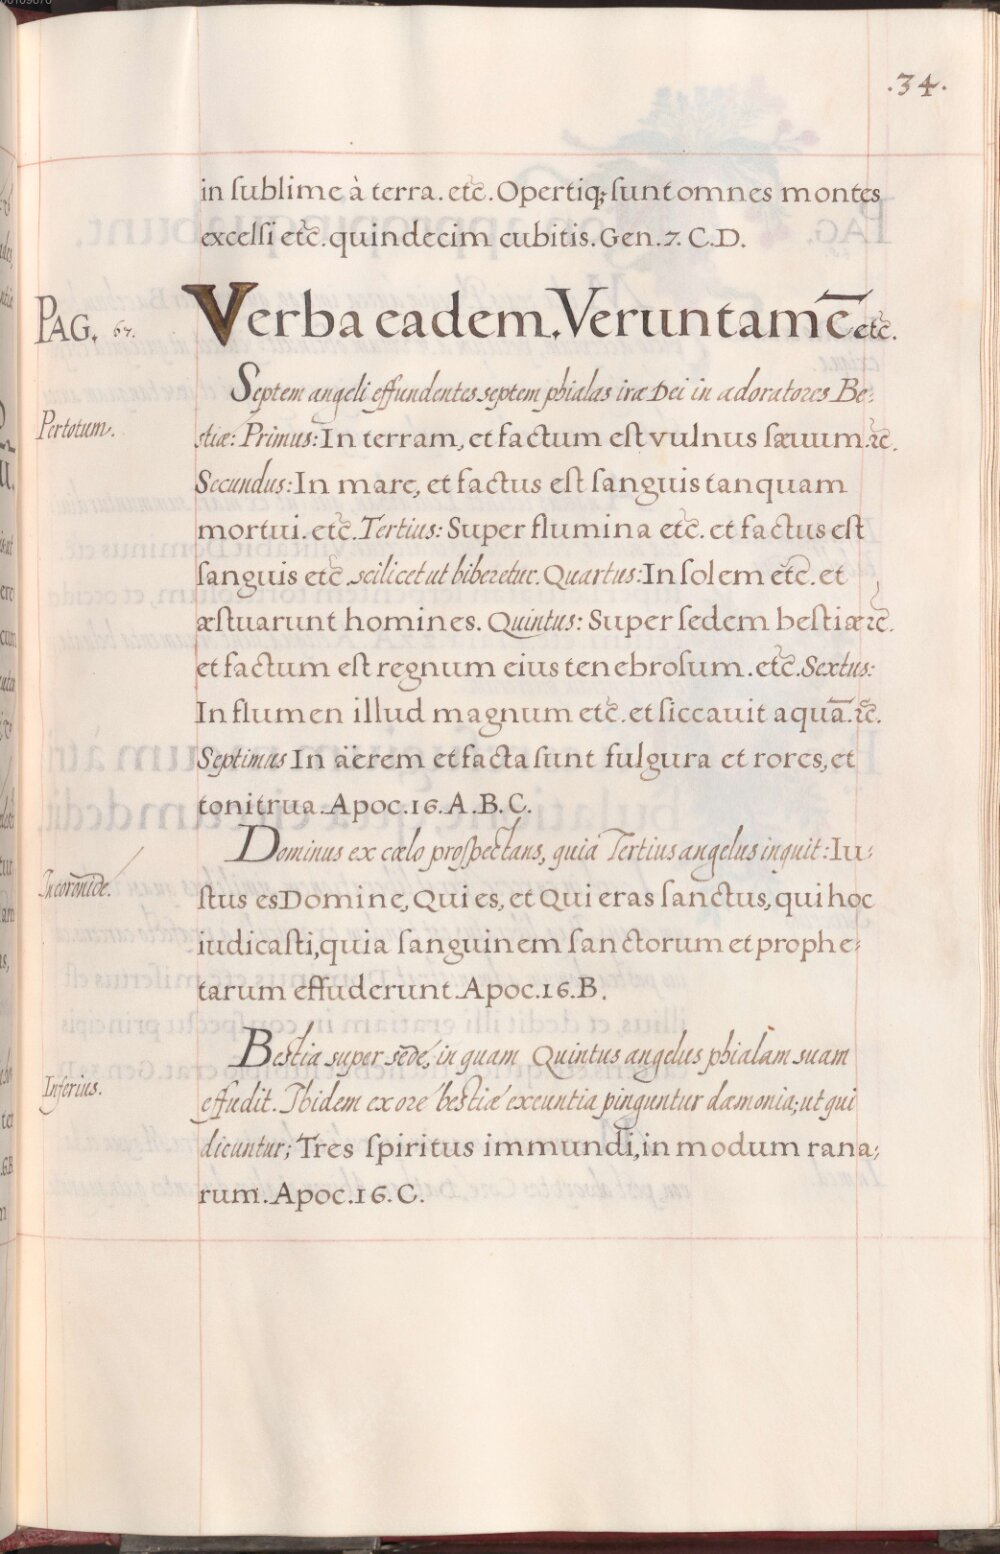 .34.
in sublime à terra. etc̃. Opertiq; sunt omnes montes
excelsi etc̃. quindecim cubitis. Gen. 7. C.D.
PAG. 67.
Verba eadem. Veruntamē etc̃.
Septem angeli effundentes septem phialas iræ Dei in adoratores Be-
Pertotum.
stiæ: Primus: In terram, et factum est vulnus sæuum. ꝛc̃.
Secundus: In mare, et factus est sanguis tanquam
mortui. etc̃. Tertius: Super flumina etc̃. et factus est
sanguis etc̃. scilicet ut biberetur. Quartus: In solem etc̃. et
æstuarunt homines. Quintus: Super sedem bestiæ ꝛc̃.
et factum est regnum eius tenebrosum. etc̃. Sextus:
In flumen illud magnum etc̃. et siccauit aquā. ꝛc̃.
Septimus In äerem et facta sunt fulgura et rores, et
tonitrua. Apoc. 16. A. B. C.
Dominus ex cœlo prospectans, quia Tertius angelus inquit: Iu-
In coronide.
stus es Domine, Qui es, et Qui eras sanctus, qui hoc
iudicasti, quia sanguinem sanctorum et prophe-
tarum effuderunt. Apoc. 16. B.
Bestia super sede, in quam Quintus angelus phialam suam
Inferius.
effudit. Ibidem ex ore bestiæ exeuntia pinguntur dæmonia; ut qui
dicuntur; Tres spiritus immundi, in modum rana-
rum. Apoc. 16. C.